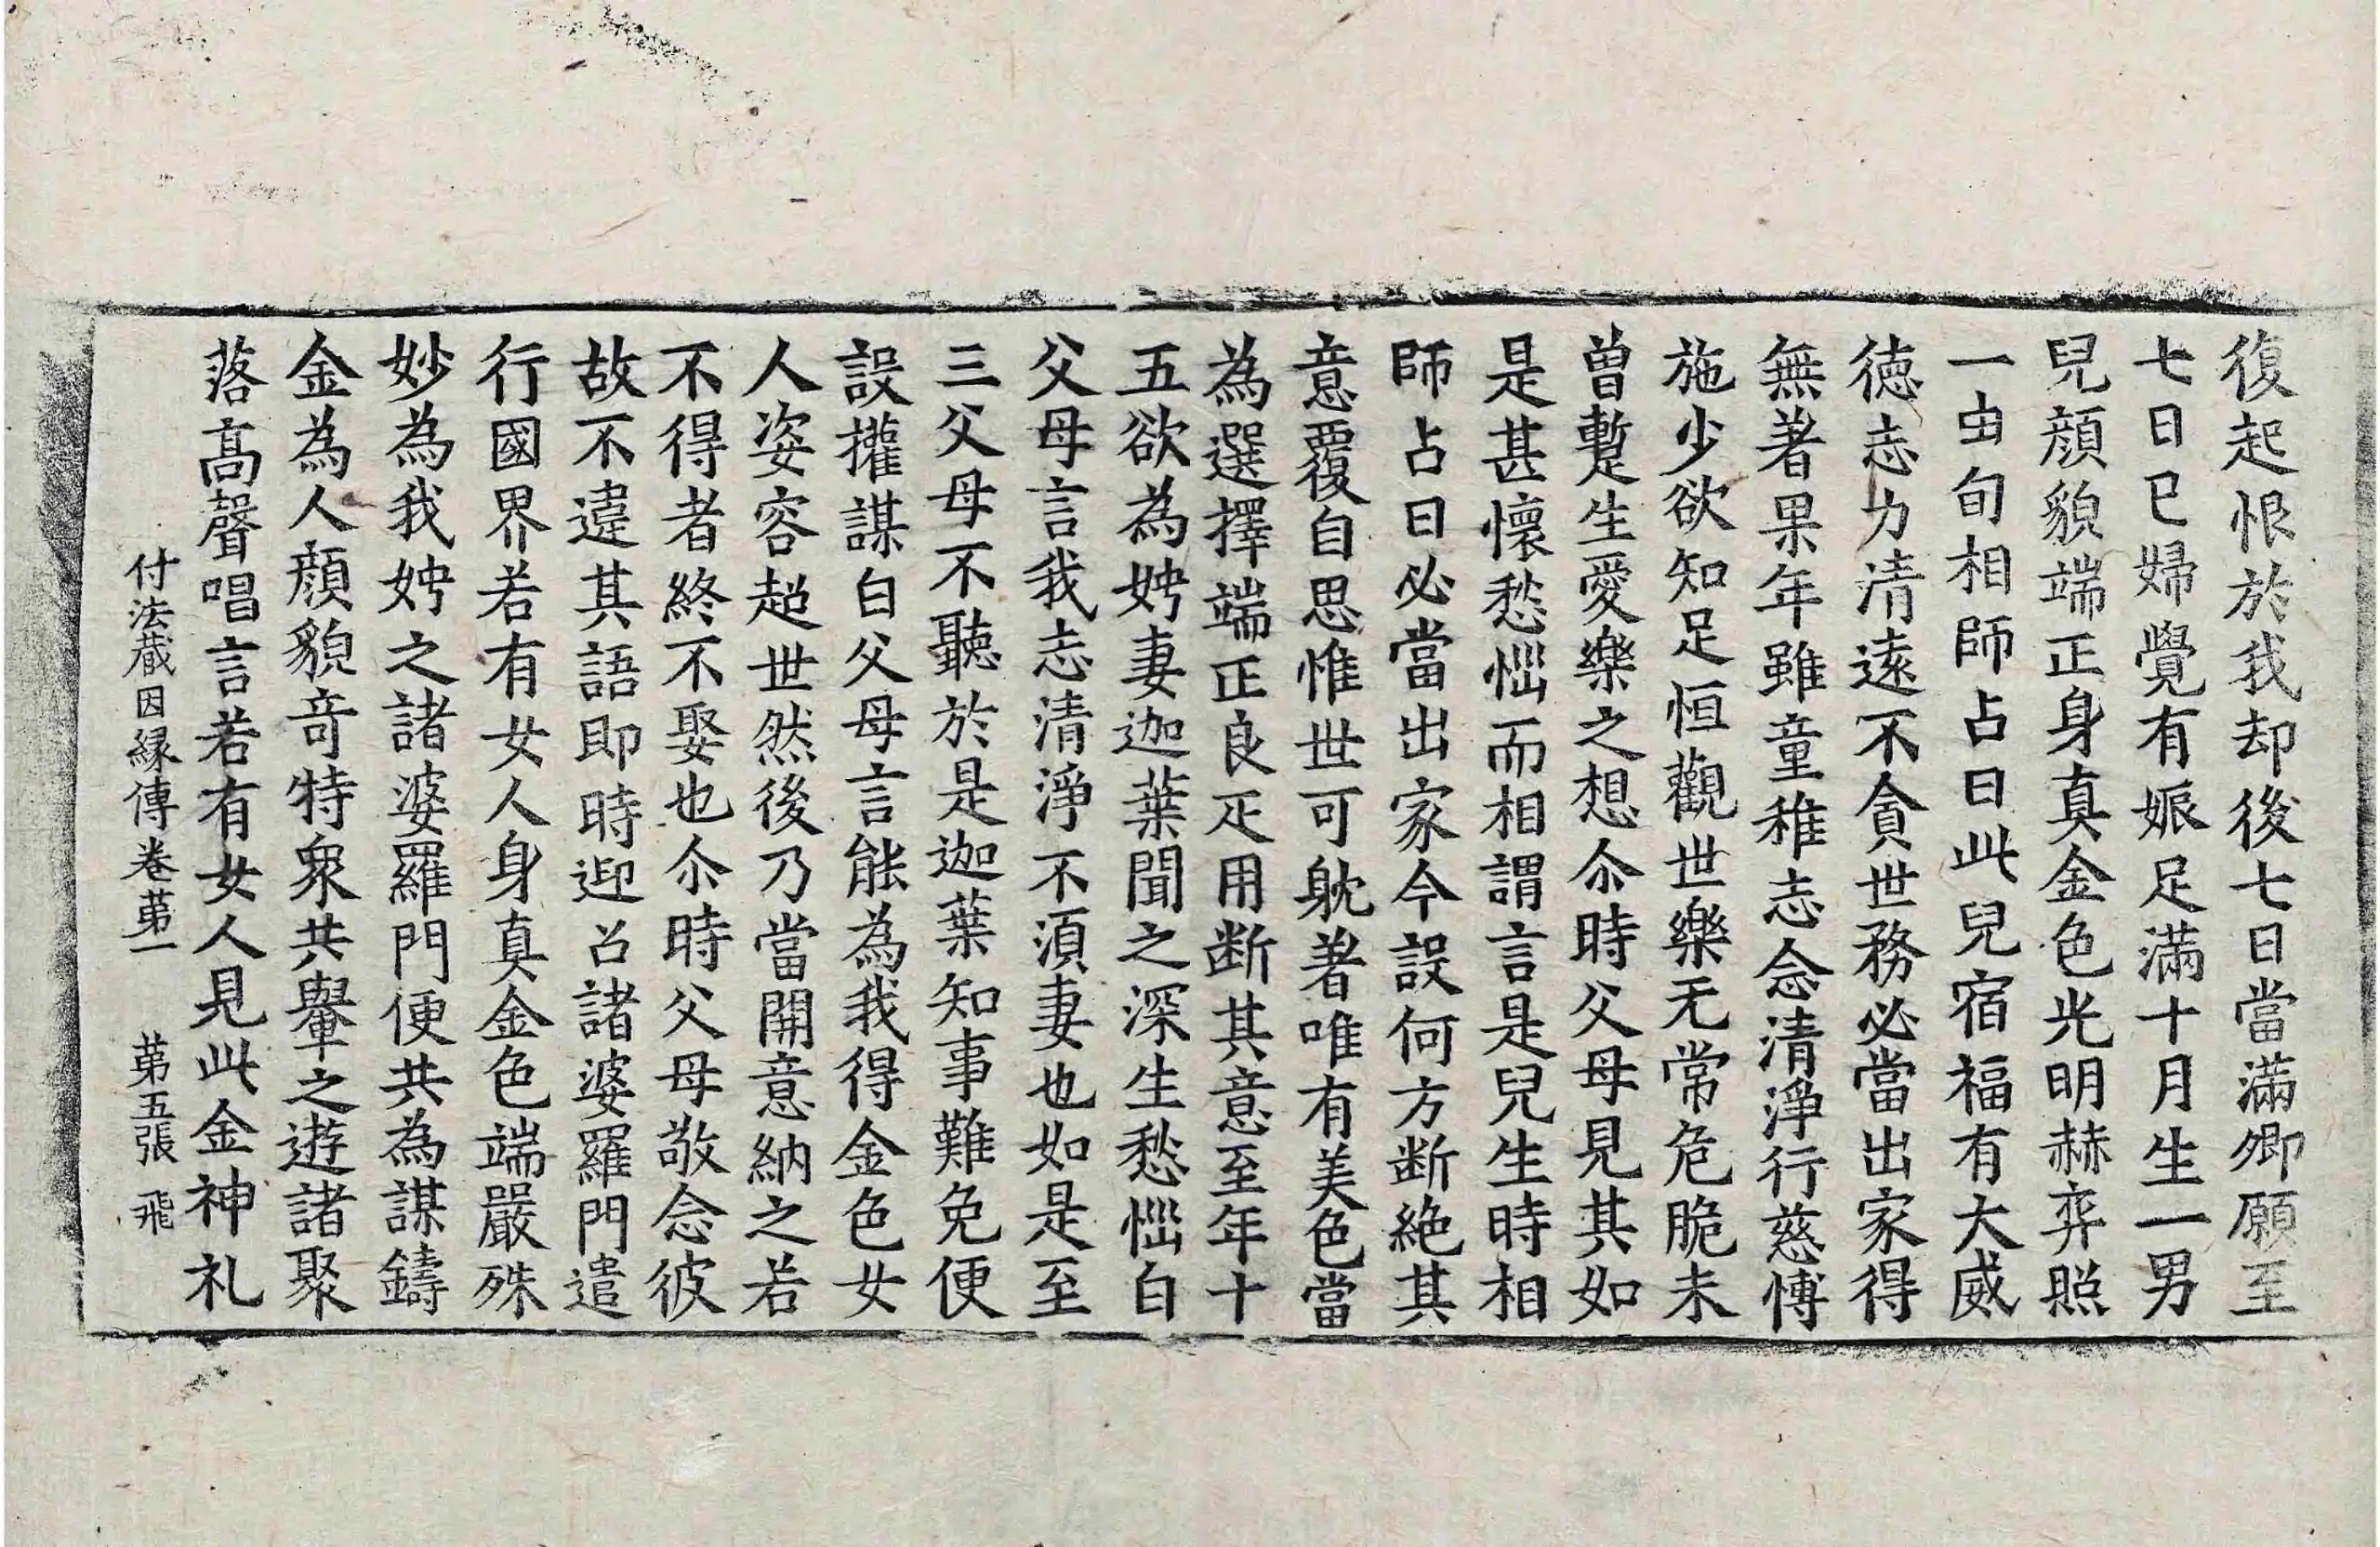 復起恨於我却後七日當滿卿願至
七日已婦覺有娠足滿十月生一男
兒顔貌端正身真金色光明赫弈照
一由旬相師占曰此兒宿福有大威
徳志力清遠不貪世務必當出家得
無著果年雖童稚志念清淨行慈愽
施少欲知足恒觀世樂无常危脆未
曽蹔生愛樂之想尒時父母見其如
是甚懷愁惱而相謂言是兒生時相
師占曰必當出家今設何方断絶其
意覆自思惟世可躭著唯有美色當
為選擇端正良疋用断其意至年十
五欲為娉妻迦葉聞之深生愁惱白
父母言我志清淨不湏妻也如是至
三父母不聽於是迦葉知事難免便
設權謀白父母言能為我得金色女
人姿容超世然後乃當開意納之若
不得者終不娶也尒時父母敬念彼
故不違其語即時迎召諸婆羅門遣
行國界若有女人身真金色端嚴殊
妙為我娉之諸婆羅門便共為謀鑄
金為人顔貌竒特衆共轝之遊諸聚
落髙聲唱言若有女人見此金神礼
付法蔵因縁傳卷苐一 苐五張 飛